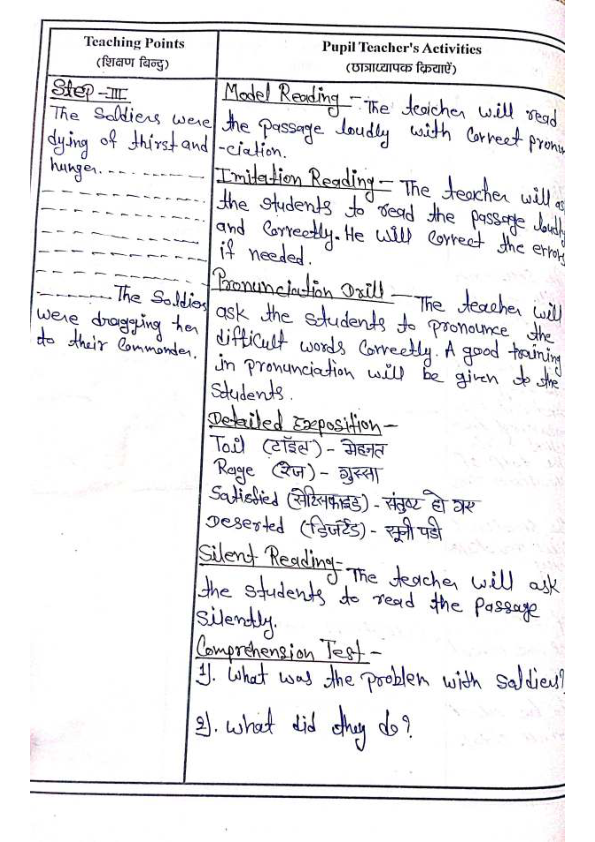 Teaching Points
(शिक्षण बिन्दु)
Pupil Teacher's Activities
(छात्राध्यापक क्रियाएँ)
Step-III
The Soldiers were
dying of thirst and
hunger.
The Soldiers
were dragging her
to their Commander.
Model Reading - The teacher will read
the passage loudly with correct pronun
-ciation.
Imitation Reading - The teacher will as
the students to read the passage loudly
and correctly. He will correct the errors
if needed.
Pronunciation Drill - The teacher will
ask the students to pronounce the
difficult words correctly. A good training
in pronunciation will be given to the
students.
Detailed Exeposition -
Toil (टॉइल) - मेहनत
Rage (रेज) - गुस्सा
Satisfied (सेटिसफाइड) - संतुष्ट हो गए
Deserted (डिजर्टेड) - सूनी पडी
Silent Reading - The teacher will ask
the students to read the passage
silently.
Comprehension Test -
1). What was the problem with soldiers?
2). What did they do?